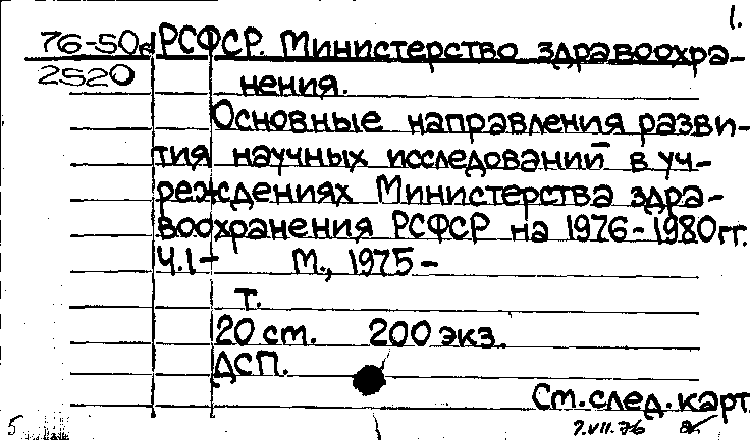 1.
76-50д РСФСР. Министерство здравоохра-
2520 нения.
Основные направления разви-
тия научных исследований в уч-
реждениях Министерства здра-
воохранения РСФСР на 1976-1980гг.
Ч.1- М., 1975-
т.
20 см. 200 экз.
ДСП.
См. след. карт.
5 7.VII.76